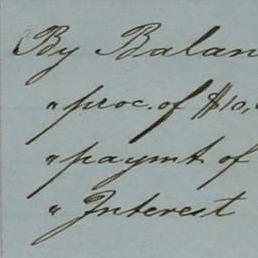 By Balan
" proc. of $10,
" paymt. of
" Interest